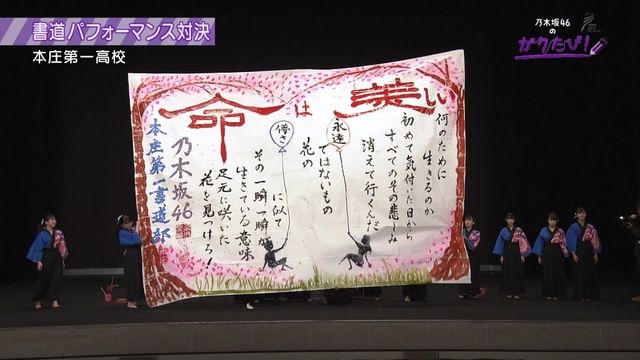 書道パフォーマンス対決
本庄第一高校
乃木坂46
の
ガクたび!
命は美しい
何のために
生きるのか
初めて気付いた日から
すべてのその悲しみ
消えて行くんだ
永遠
ではないもの
花の
儚さ
に似て
その一瞬一瞬が
生きている意味
足元に咲いた
花を見つけろ!
乃木坂46
本庄第一書道部